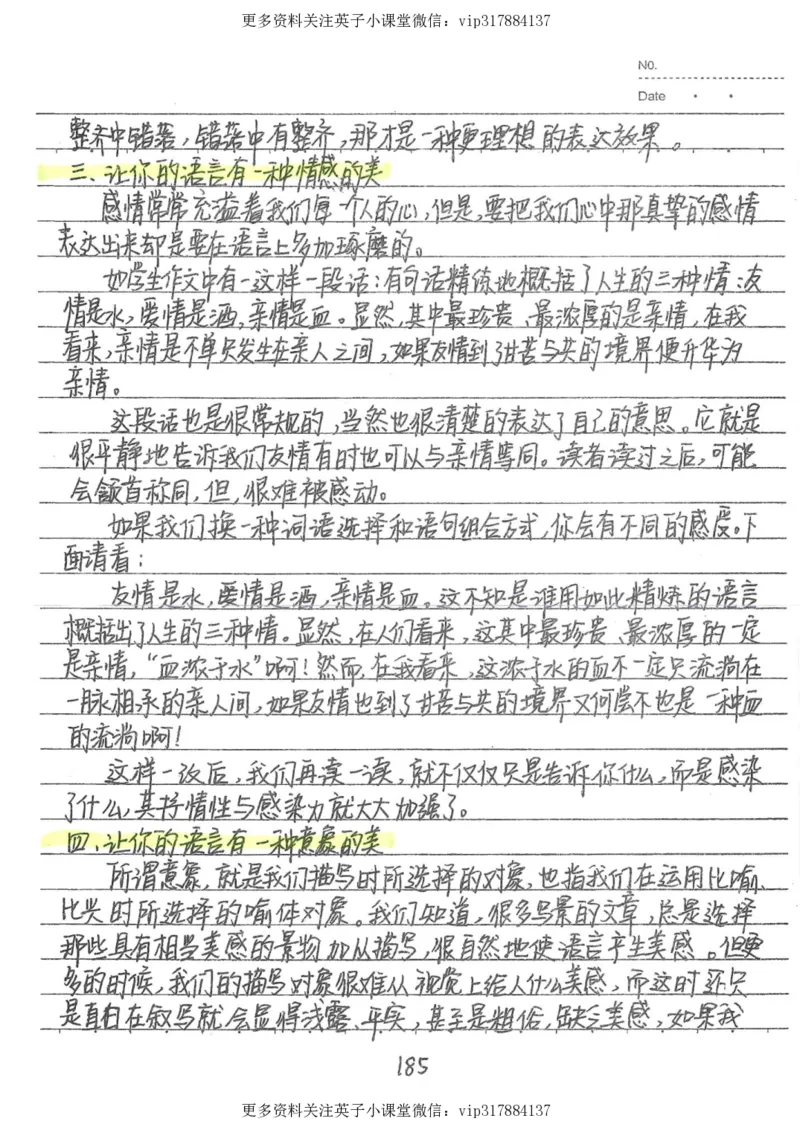 更多资料关注英子小课堂微信：vip317884137
NO.
Date
整齐中错落，错落中有整齐，那才是一种更理想的表达效果。
三、让你的语言有一种情感的美
感情常常充溢着我们每一个人的心，但是，要把我们心中那真挚的感情
表达出来却是要在语言上多加琢磨的。
如学生作文中有一这样一段话：有句话精练地概括了人生的三种情：友
情是水，爱情是酒，亲情是血。显然，其中最珍贵、最浓厚的是亲情，在我
看来，亲情是不单只发生在亲人之间，如果友情到了甘苦与共的境界便升华为
亲情。
这段话也是很常规的，当然也很清楚的表达了自己的意思。它就是
很平静地告诉我们友情有时也可以与亲情等同。读者读过之后，可能
会颔首称同，但，很难被感动。
如果我们换一种词语选择和语句组合方式，你会有不同的感受。下
面请看：
友情是水，爱情是酒，亲情是血。这不知是谁用如此精炼的语言
概括出了人生的三种情。显然，在人们看来，这其中最珍贵、最浓厚的一定
是亲情，“血浓于水”啊！然而，在我看来，这浓于水的血不一定只流淌在
一脉相承的亲人间，如果友情也到了甘苦与共的境界又何尝不也是一种血
的流淌啊！
这样一改后，我们再读一读，就不仅仅只是告诉你什么，而是感染
了什么，其抒情性与感染力就大大加强了。
四、让你的语言有一种意象的美
所谓意象，就是我们描写时所选择的对象，也指我们在运用比喻、
比兴时所选择的喻体对象。我们知道，很多写景的文章，总是选择
那些具有相当美感的景物加以描写，很自然地使语言产生美感。但更
多的时候，我们的描写对象很难从视觉上给人什么美感，而这时还只
是直白在叙写就会显得浅露、平实，甚至是粗俗，缺乏美感，如果我
185
更多资料关注英子小课堂微信：vip317884137